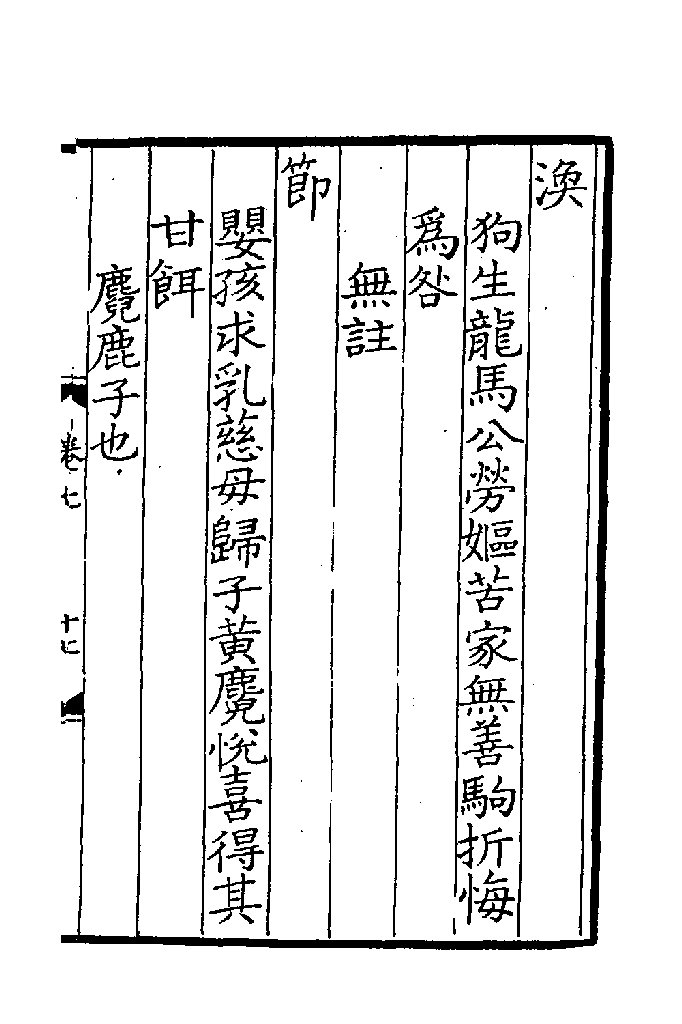 渙
狗生龍馬公勞嫗苦家無善駒折悔
爲咎
無註
節
嬰孩求乳慈母歸子黃麑悅喜得其
甘餌
麑鹿子也
卷七
十七